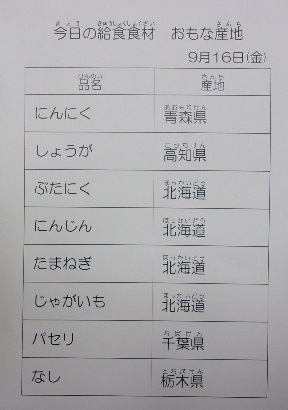 今日の給食食材　おもな産地
9月16日(金)
品名 産地
にんにく 青森県
しょうが 高知県
ぶたにく 北海道
にんじん 北海道
たまねぎ 北海道
じゃがいも 北海道
パセリ 千葉県
なし 栃木県